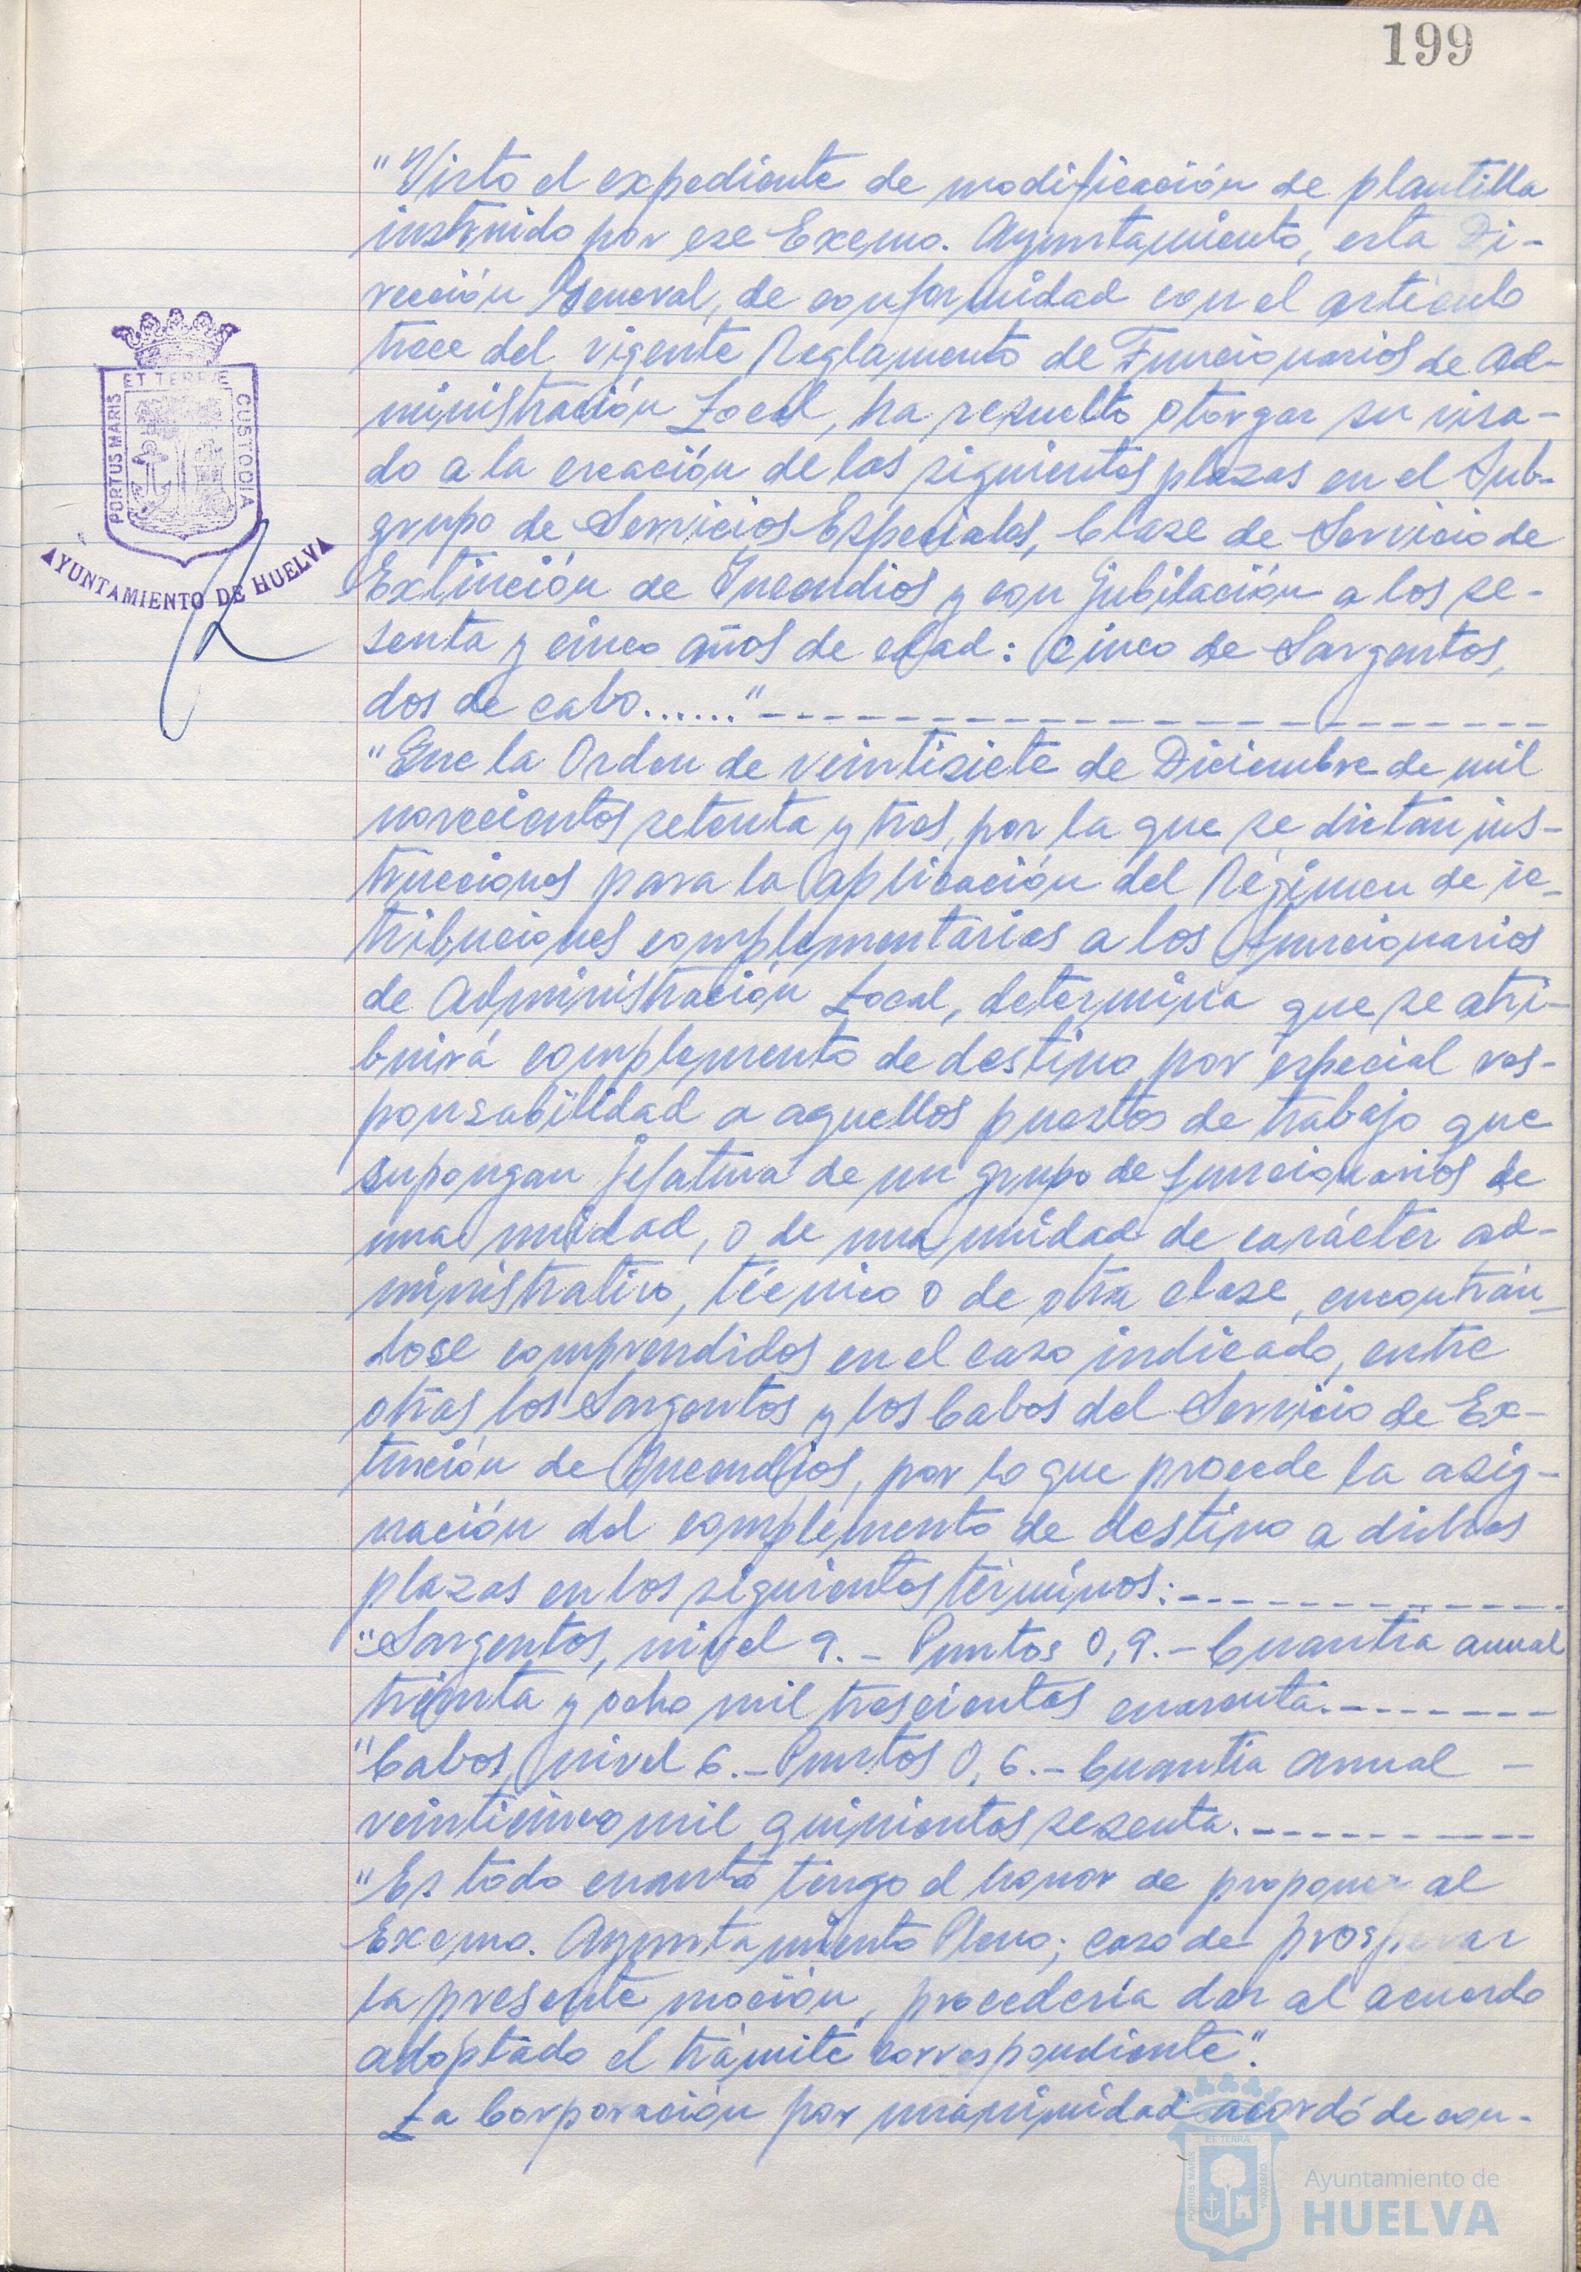 199
"Visto el expediente de modificación de plantilla
instruido por ese Excmo. Ayuntamiento, esta Di-
rección General, de conformidad con el artículo
trece del vigente Reglamento de Funcionarios de Ad-
ministración Local, ha resuelto otorgar su visa-
do a la creación de las siguientes plazas en el Sub-
grupo de Servicios Especiales, Clase de Servicio de
Extinción de Incendios y con jubilación a los se-
senta y cinco años de edad: Cinco de Sargentos,
dos de cabo......"
"Que la Orden de veintisiete de Diciembre de mil
novecientos setenta y tres, por la que se dictan ins-
trucciones para la aplicación del Régimen de re-
tribuciones complementarias a los funcionarios
de Administración Local, determina que se atri-
buirá complemento de destino por especial res-
ponsabilidad a aquellos puestos de trabajo que
supongan jefatura de un grupo de funcionarios de
una unidad, o de una unidad de carácter ad-
ministrativo, técnico o de otra clase, encontrán-
dose comprendidos en el caso indicado, entre
otras los Sargentos y los Cabos del Servicio de Ex-
tinción de Incendios, por lo que procede la asig-
nación del complemento de destino a dichas
plazas en los siguientes términos:
"Sargentos, nivel 9.- Puntos 0,9.- Cuantía anual
treinta y ocho mil trescientas cuarenta.
"Cabos, nivel 6.- Puntos 0,6.- Cuantía anual -
veinticinco mil quinientas sesenta.
"Es todo cuanto tengo el honor de proponer al
Excmo. Ayuntamiento Pleno; caso de prosperar
la presente moción, procedería dar al acuerdo
adoptado el trámite correspondiente".
La Corporación por unanimidad acordó de con-
PORTUS MARIS ET TERRÆ CUSTODIA
AYUNTAMIENTO DE HUELVA
PORTUS MARIS ET TERRÆ CUSTODIA
Ayuntamiento de
HUELVA